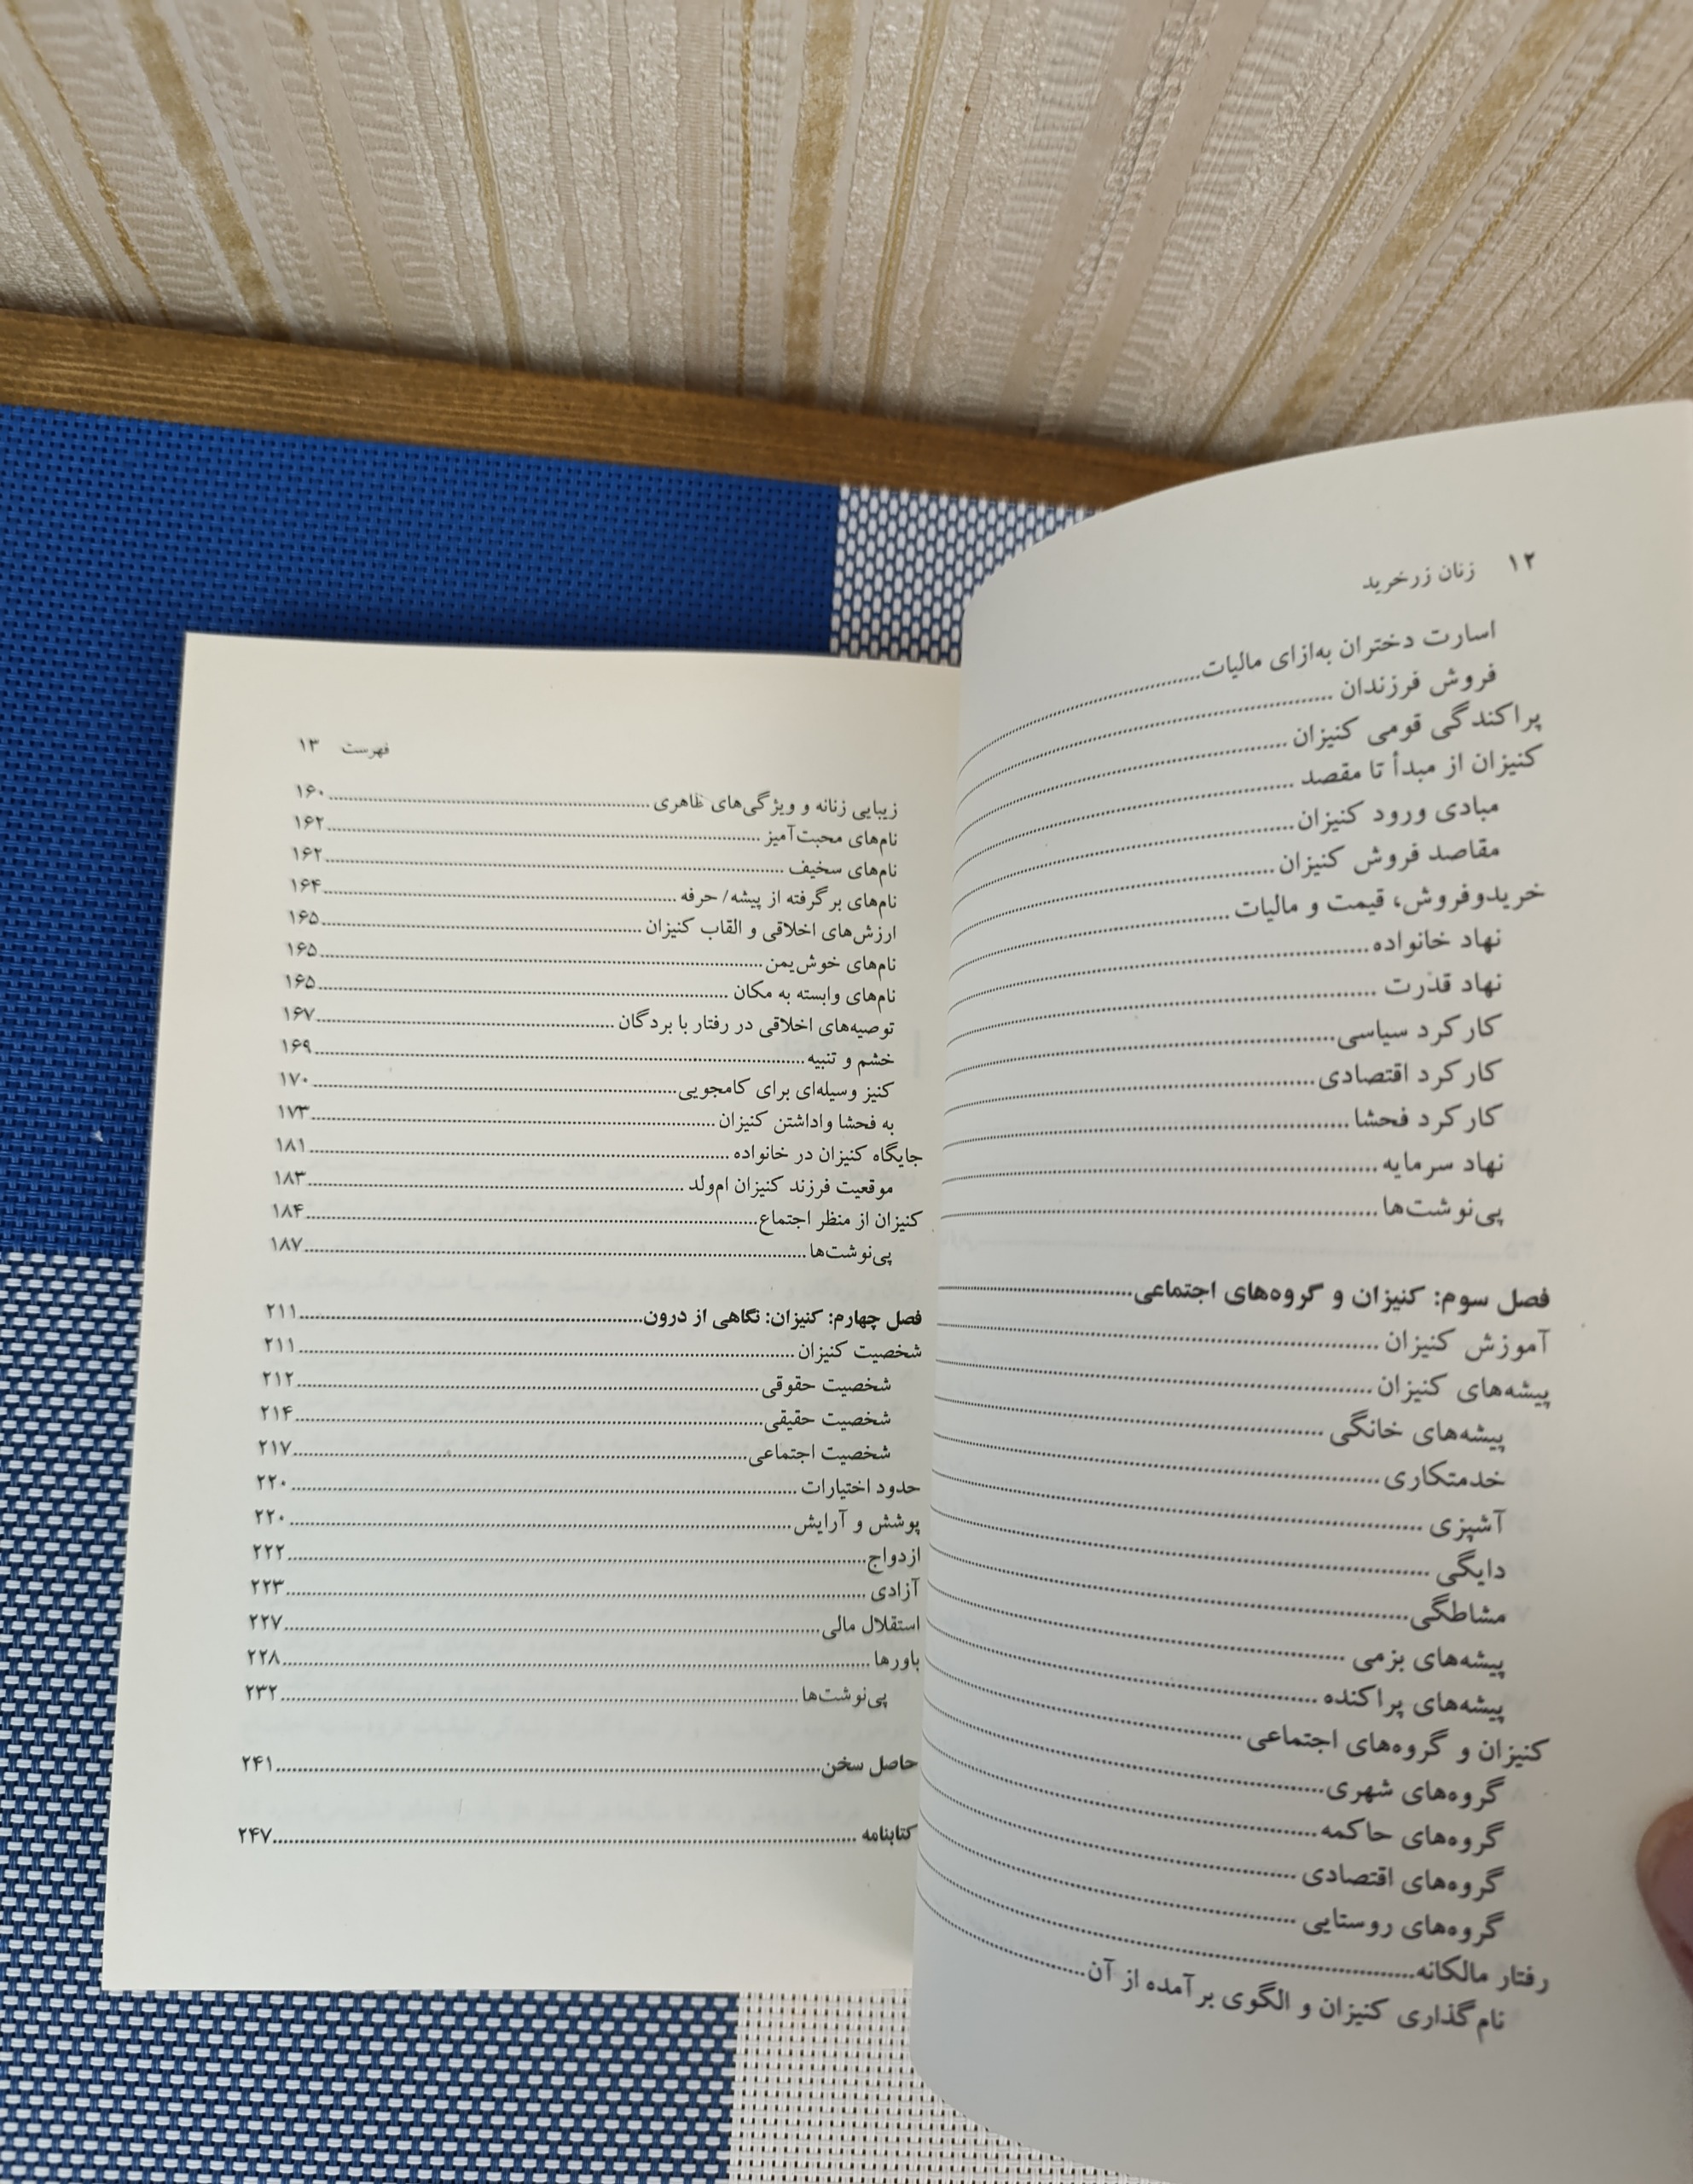 ۱۲ زنان زرخرید
اسارت دختران به‌ازای مالیات
فروش فرزندان
پراکندگی قومی کنیزان
کنیزان از مبدأ تا مقصد
مبادی ورود کنیزان
مقاصد فروش کنیزان
خریدوفروش، قیمت و مالیات
نهاد خانواده
نهاد قدرت
کارکرد سیاسی
کارکرد اقتصادی
کارکرد فحشا
نهاد سرمایه
پی‌نوشت‌ها
فصل سوم: کنیزان و گروه‌های اجتماعی
آموزش کنیزان
پیشه‌های کنیزان
پیشه‌های خانگی
خدمتکاری
آشپزی
دایگی
مشاطگی
پیشه‌های بزمی
پیشه‌های پراکنده
کنیزان و گروه‌های اجتماعی
گروه‌های شهری
گروه‌های حاکمه
گروه‌های اقتصادی
گروه‌های روستایی
رفتار مالکانه
نام‌گذاری کنیزان و الگوی برآمده از آن
فهرست ۱۳
زیبایی زنانه و ویژگی‌های ظاهری ۱۶۰
نام‌های محبت‌آمیز ۱۶۲
نام‌های سخیف ۱۶۲
نام‌های برگرفته از پیشه/ حرفه ۱۶۴
ارزش‌های اخلاقی و القاب کنیزان ۱۶۵
نام‌های خوش‌یمن ۱۶۵
نام‌های وابسته به مکان ۱۶۵
توصیه‌های اخلاقی در رفتار با بردگان ۱۶۷
خشم و تنبیه ۱۶۹
کنیز وسیله‌ای برای کامجویی ۱۷۰
به فحشا واداشتن کنیزان ۱۷۳
جایگاه کنیزان در خانواده ۱۸۱
موقعیت فرزند کنیزان ام‌ولد ۱۸۳
کنیزان از منظر اجتماع ۱۸۴
پی‌نوشت‌ها ۱۸۷
فصل چهارم: کنیزان: نگاهی از درون ۲۱۱
شخصیت کنیزان ۲۱۱
شخصیت حقوقی ۲۱۲
شخصیت حقیقی ۲۱۴
شخصیت اجتماعی ۲۱۷
حدود اختیارات ۲۲۰
پوشش و آرایش ۲۲۰
ازدواج ۲۲۲
آزادی ۲۲۳
استقلال مالی ۲۲۷
باورها ۲۲۸
پی‌نوشت‌ها ۲۳۲
حاصل سخن ۲۴۱
کتابنامه ۲۴۷